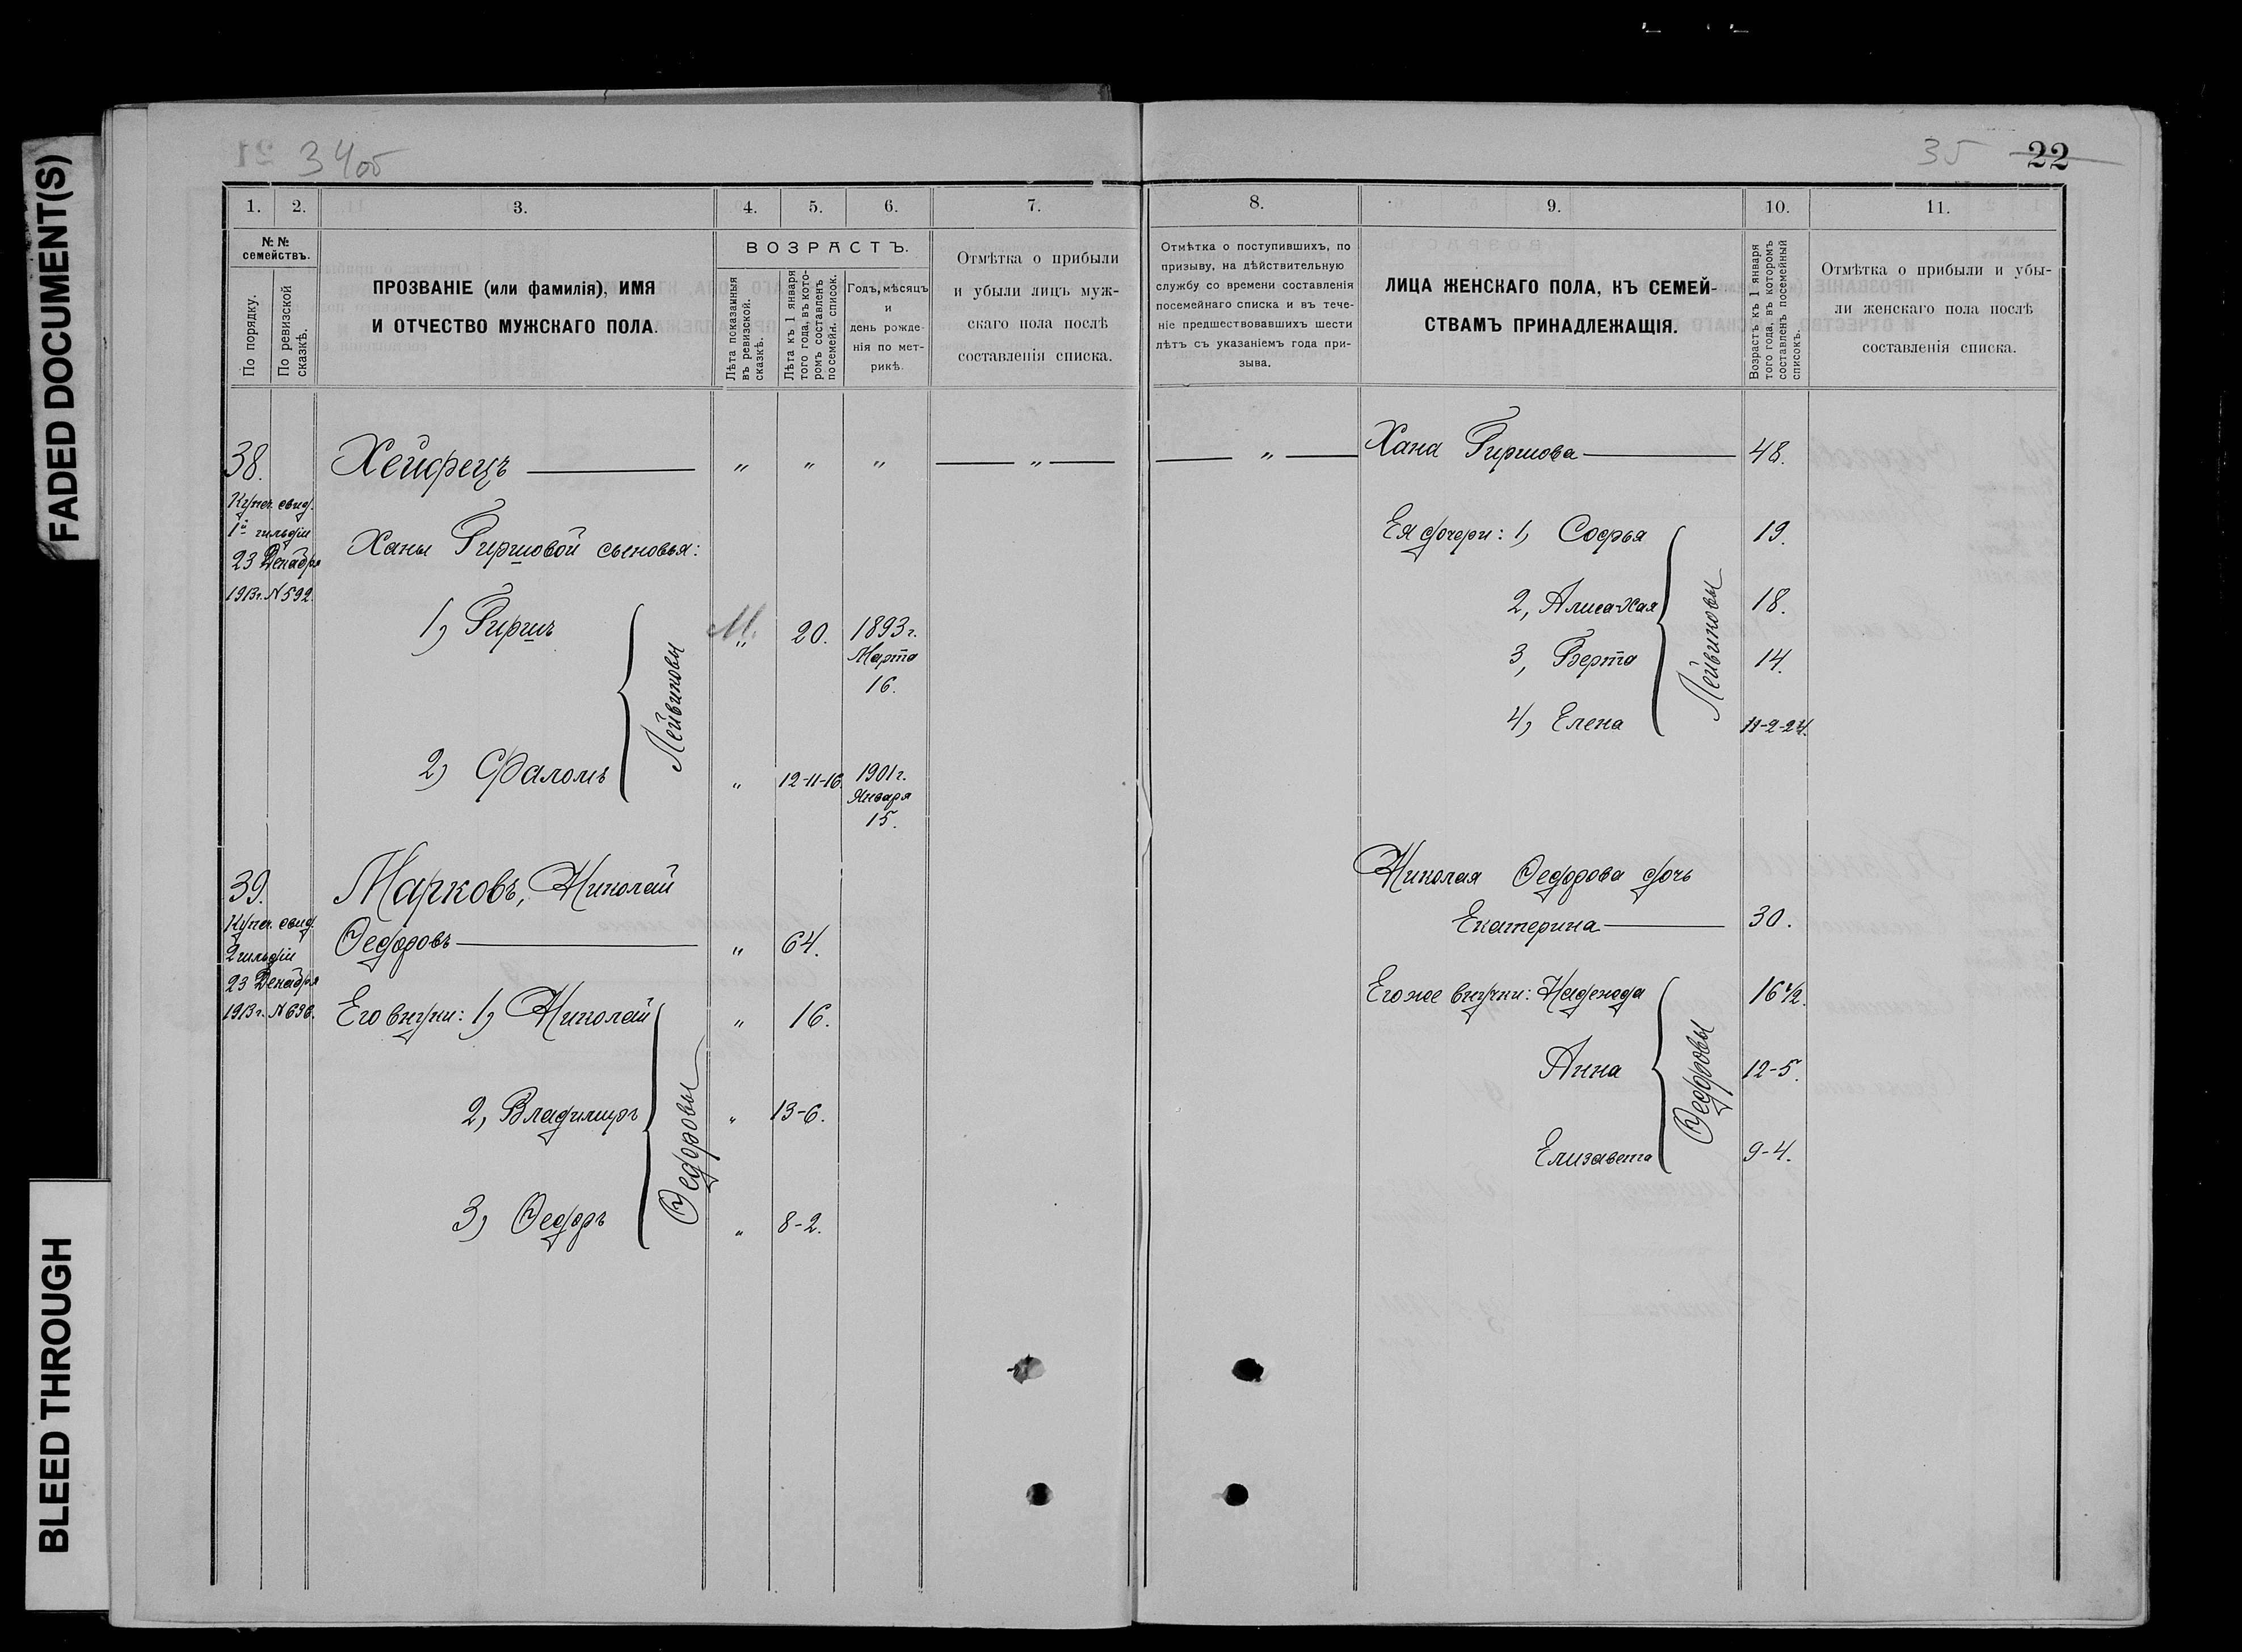 FADED DOCUMENT(S)
BLEED THROUGH
34об
35 22
1. 2. 3. 4. 5. 6. 7.
№ №
семействъ.
По порядку.
По ревизской
сказкѣ.
ПРОЗВАНІЕ (или фамилія), ИМЯ
И ОТЧЕСТВО МУЖСКАГО ПОЛА.
ВОЗРАСТЪ.
Лѣта показанныя
въ ревизской.
сказкѣ.
Лѣта къ 1 января
того года, въ кото-
ромъ составленъ
посемейн. список.
Годъ, мѣсяцъ
и
день рожде-
нія по мет-
рикѣ.
Отмѣтка о прибыли
и убыли лицъ муж-
скаго пола послѣ
составленія списка.
38. Хейфецъ " " " "
Купеч. свид.
1й гильдіи
23 Декабря
1913г. № 592.
Ханы Гиршовой сыновья:
1) Гиршъ М. " 20. 1893 г.
Марта
16.
Лейвиковы
2) Фаломъ " 12-11-16. 1901 г.
Января
15.
39. Марковъ, Николай
Купеч. свид.
2 гильдіи
23 Декабря
1913г. № 696.
Ѳедоровъ " 64.
Его внуки: 1) Николай " 16.
2, Владиміръ " 13-6.
Ѳедоровы
3) Ѳедоръ " 8-2.
8. 9. 10. 11.
Отмѣтка о поступившихъ, по
призыву, на дѣйствительную
службу со времени составленія
посемейнаго списка и въ тече-
ніе предшествовавшихъ шести
лѣтъ съ указаніемъ года при-
зыва.
ЛИЦА ЖЕНСКАГО ПОЛА, КЪ СЕМЕЙ-
СТВАМЪ ПРИНАДЛЕЖАЩІЯ.
Возрастъ къ 1 января
того года, въ которомъ
составленъ посемейный
списокъ.
Отмѣтка о прибыли и убы-
ли женскаго пола послѣ
составленія списка.
" Хана Гиршова 48.
Ея дочери: 1, Софья 19.
2, Алиса-Хая 18.
3, Берта 14.
4, Елена 11-2-24.
Лейвиковы
Николая Ѳедорова дочь
Екатерина 30.
Его же внучки: Надежда 16 1/2.
Анна 12-5.
Елизавета 9-4.
Ѳедоровы